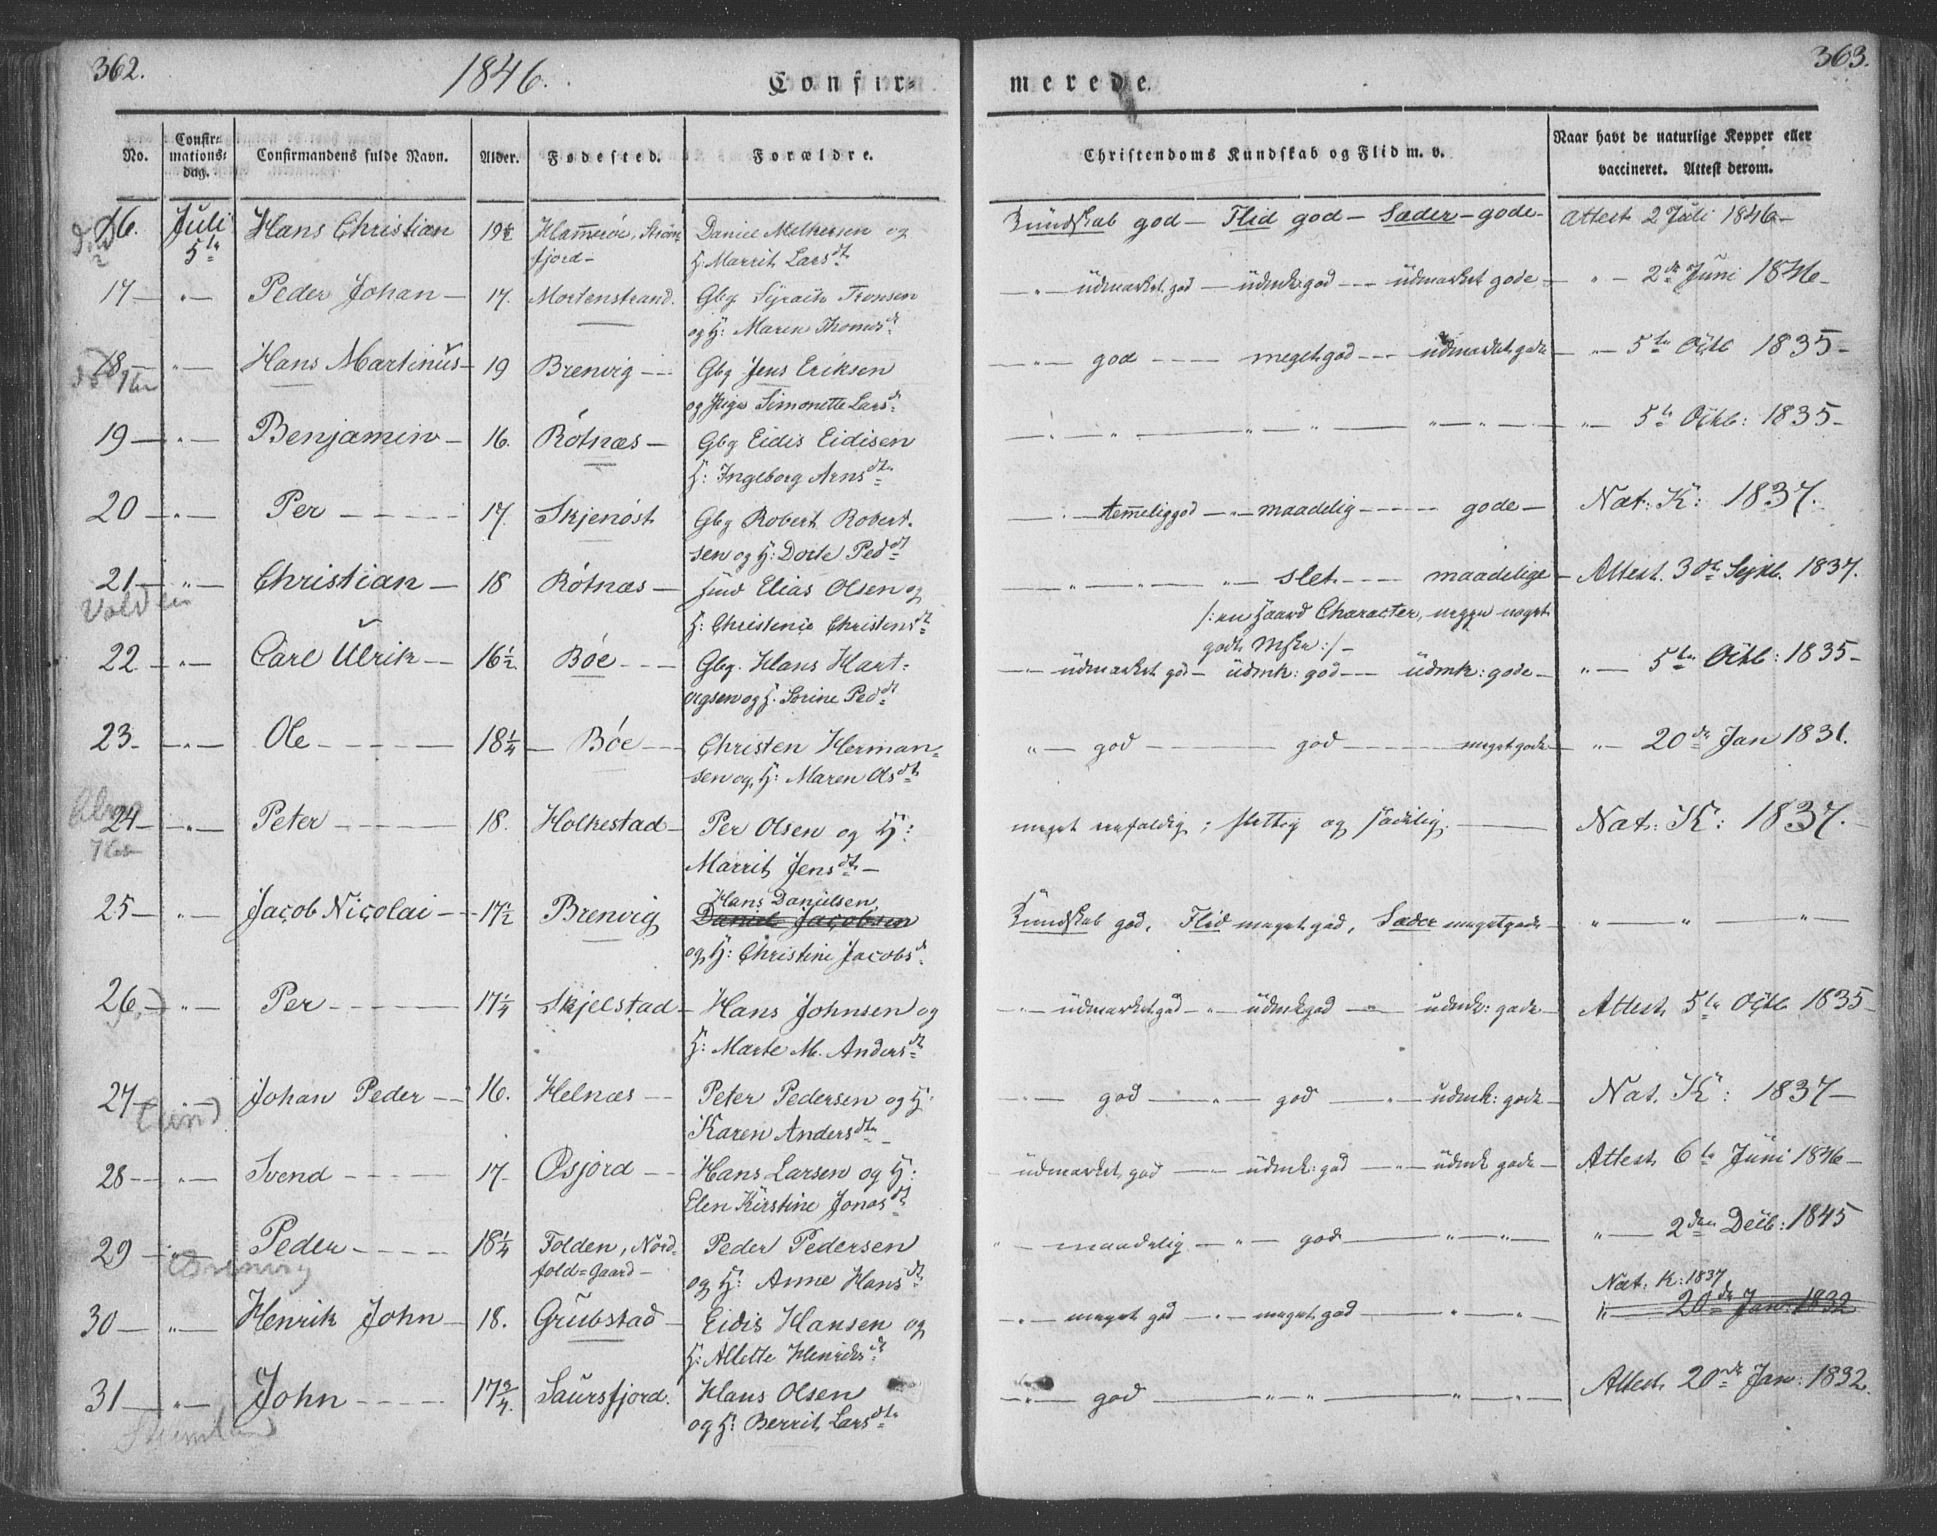 362.
1846.
Confir-
No.
Confirmationsdag.
Confirmandens fulde Navn.
Alder.
Fødested.
Forældre.
16. Juli 5te Hans Christian 19½ Hammerøe, fjord- Daniel Melkersen og
H: Marrit Larsdt
17 — " — Peder Johan — 17. Mortenstrand. Gbg Tronsen
og H: Maren Thomsdt
18 — " — Hans Martinus — 19 Brenvig — Gbg Jens Eriksen
og Simonette Larsdt
19 — " — Benjamin — 16. Rótnæs — Gbg Eidis Eidisen
H: Ingeborg Arnsdtr
20 — " — Per — 17. Skjenóst Gbg Robert Robert-
sen og H: Dorte Peddt
21 — " — Christian — 18 Rótnæs — Elias Olsen og
Volden
H: Christensdt
22 — " — Carl Ulrik — 16½ Bóe — Gbg. Hans Hart-
vigsen og H. Sorine Peddt
23. — " — Ole — 18¼ — Bóe — Christen Herman-
sen og H: Maren Olsdt
24 — " — Peter — 18. Holkestad — Per Olsen og H:
Marrit Jensdtr —
25 — " — Jacob Nicolai — 17½ Brenvig Hans Danielsen
Daniel Jacobsen
og H: Christine Jacobsd
26 — " — Per — 17¼ Skjelstad — Hans Johnsen og
H: Marte M. Andersdt
27 — " — Johan Peder — 16. Helnæs — Peter Pedersen og H:
Lund
Karen Andersdtr —
28 — " — Svend — 17. Osjord — Hans Larsen og H:
Elen Kirstine Jonasdt
29 — " — Peder — 18¼ Folden, Nord-
fold=Gaard — Peder Pedersen
Brenvig
og H: Anne Hansdt
30 — " — Henrik John — 18. Grubstad — Eidis Hansen og
H: Allette Henriksdt
31 — " — John — 17¾. Saursfjord. Hans Olsen
og H: Berrit Larsdtr
363.
merede.
Christendoms Kundskab og Flid m. v.
Naar havt de naturlige Kopper eller
vaccineret. Attest derom.
Kundskab god — Flid god — Sæder — gode — Attest 2 Juli 1846 —
— " — udmærket god — udmk: god — udmærket gode — " — 2de Juni 1846 —
— " — god — meget god — udmærket gode — " — 5te Octb 1835 —
— " — " — " — " — " — 5te Octb: 1835 —
— " — temmelig god — " — maadelig — gode — Nat: K: 1837.
— " — " — " — slet — maadelige — Attest. 30te Septb. 1837.
/: en haard Character, neppe noget
godt Mske :/ —
— " — udmærket god — udmk: god — udmk: gode — " — 5te Octb: 1835 —
" — god — god — meget gode — " — 20de Jan 1831.
meget enfoldig; og — Nat: K: 1837. —
Kundskab god, Flid meget god, Sæder meget gode — " — " — " —
— " — udmærket god — " — udmk god — " — udmk: gode — Attest 5te Octb 1835 —
— " — god — " — god — " — udmk: gode — Nat. K: 1837 —
— udmærket god — " — udmk: god — " — udmk gode — Attest 6te Juni 1846 —
" — maadelig — " — god — " — " — " — 2den Decb: 1845
Nat. K: 1837
— " — meget god — " — meget god — " — " " — 20de Jan: 1832
— " — god — " — " — " — " — Attest 20de Jan: 1832.